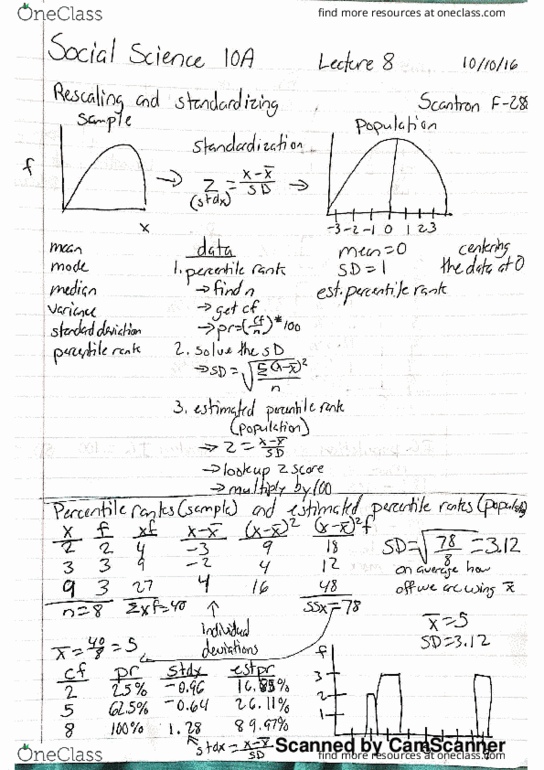 OneClass
find more resources at oneclass.com
Social Science 10A Lecture 8 10/10/16
Rescaling and standardizing Scantron F-288
sample
Population
standardization
f
Z = x-x̄ / SD
(stdx)
x
-3 -2 -1 0 1 2 3
mean data mean=0 centering
mode 1. percentile rank SD=1 the data at 0
median → find n est. percentile rank
variance → get cf
standard deviation → pr=(cf/n)*100
percentile rank 2. solve the SD
→ SD = √Σ(x-x̄)²/n
3. estimated percentile rank
(population)
→ Z = x-x̄/SD
→ look up z score
→ multiply by 100
Percentile ranks (sample) and estimated percentile ranks (population)
x f xf x-x̄ (x-x̄)² (x-x̄)²f
2 2 4 -3 9 18
3 3 9 -2 4 12
9 3 27 4 16 48
n=8 Σxf=40 SSx=78
SD=√78/8 = 3.12
on average how
off we are using x̄
x̄=5
SD=3.12
individual
deviations
x̄ = 40/8 = 5
cf pr stdx estpr
2 25% -0.96 16.85%
5 62.5% -0.64 26.11%
8 100% 1.28 89.97%
stdx = x-x̄/SD
f
3
2
1
Scanned by CamScanner
OneClass
find more resources at oneclass.com